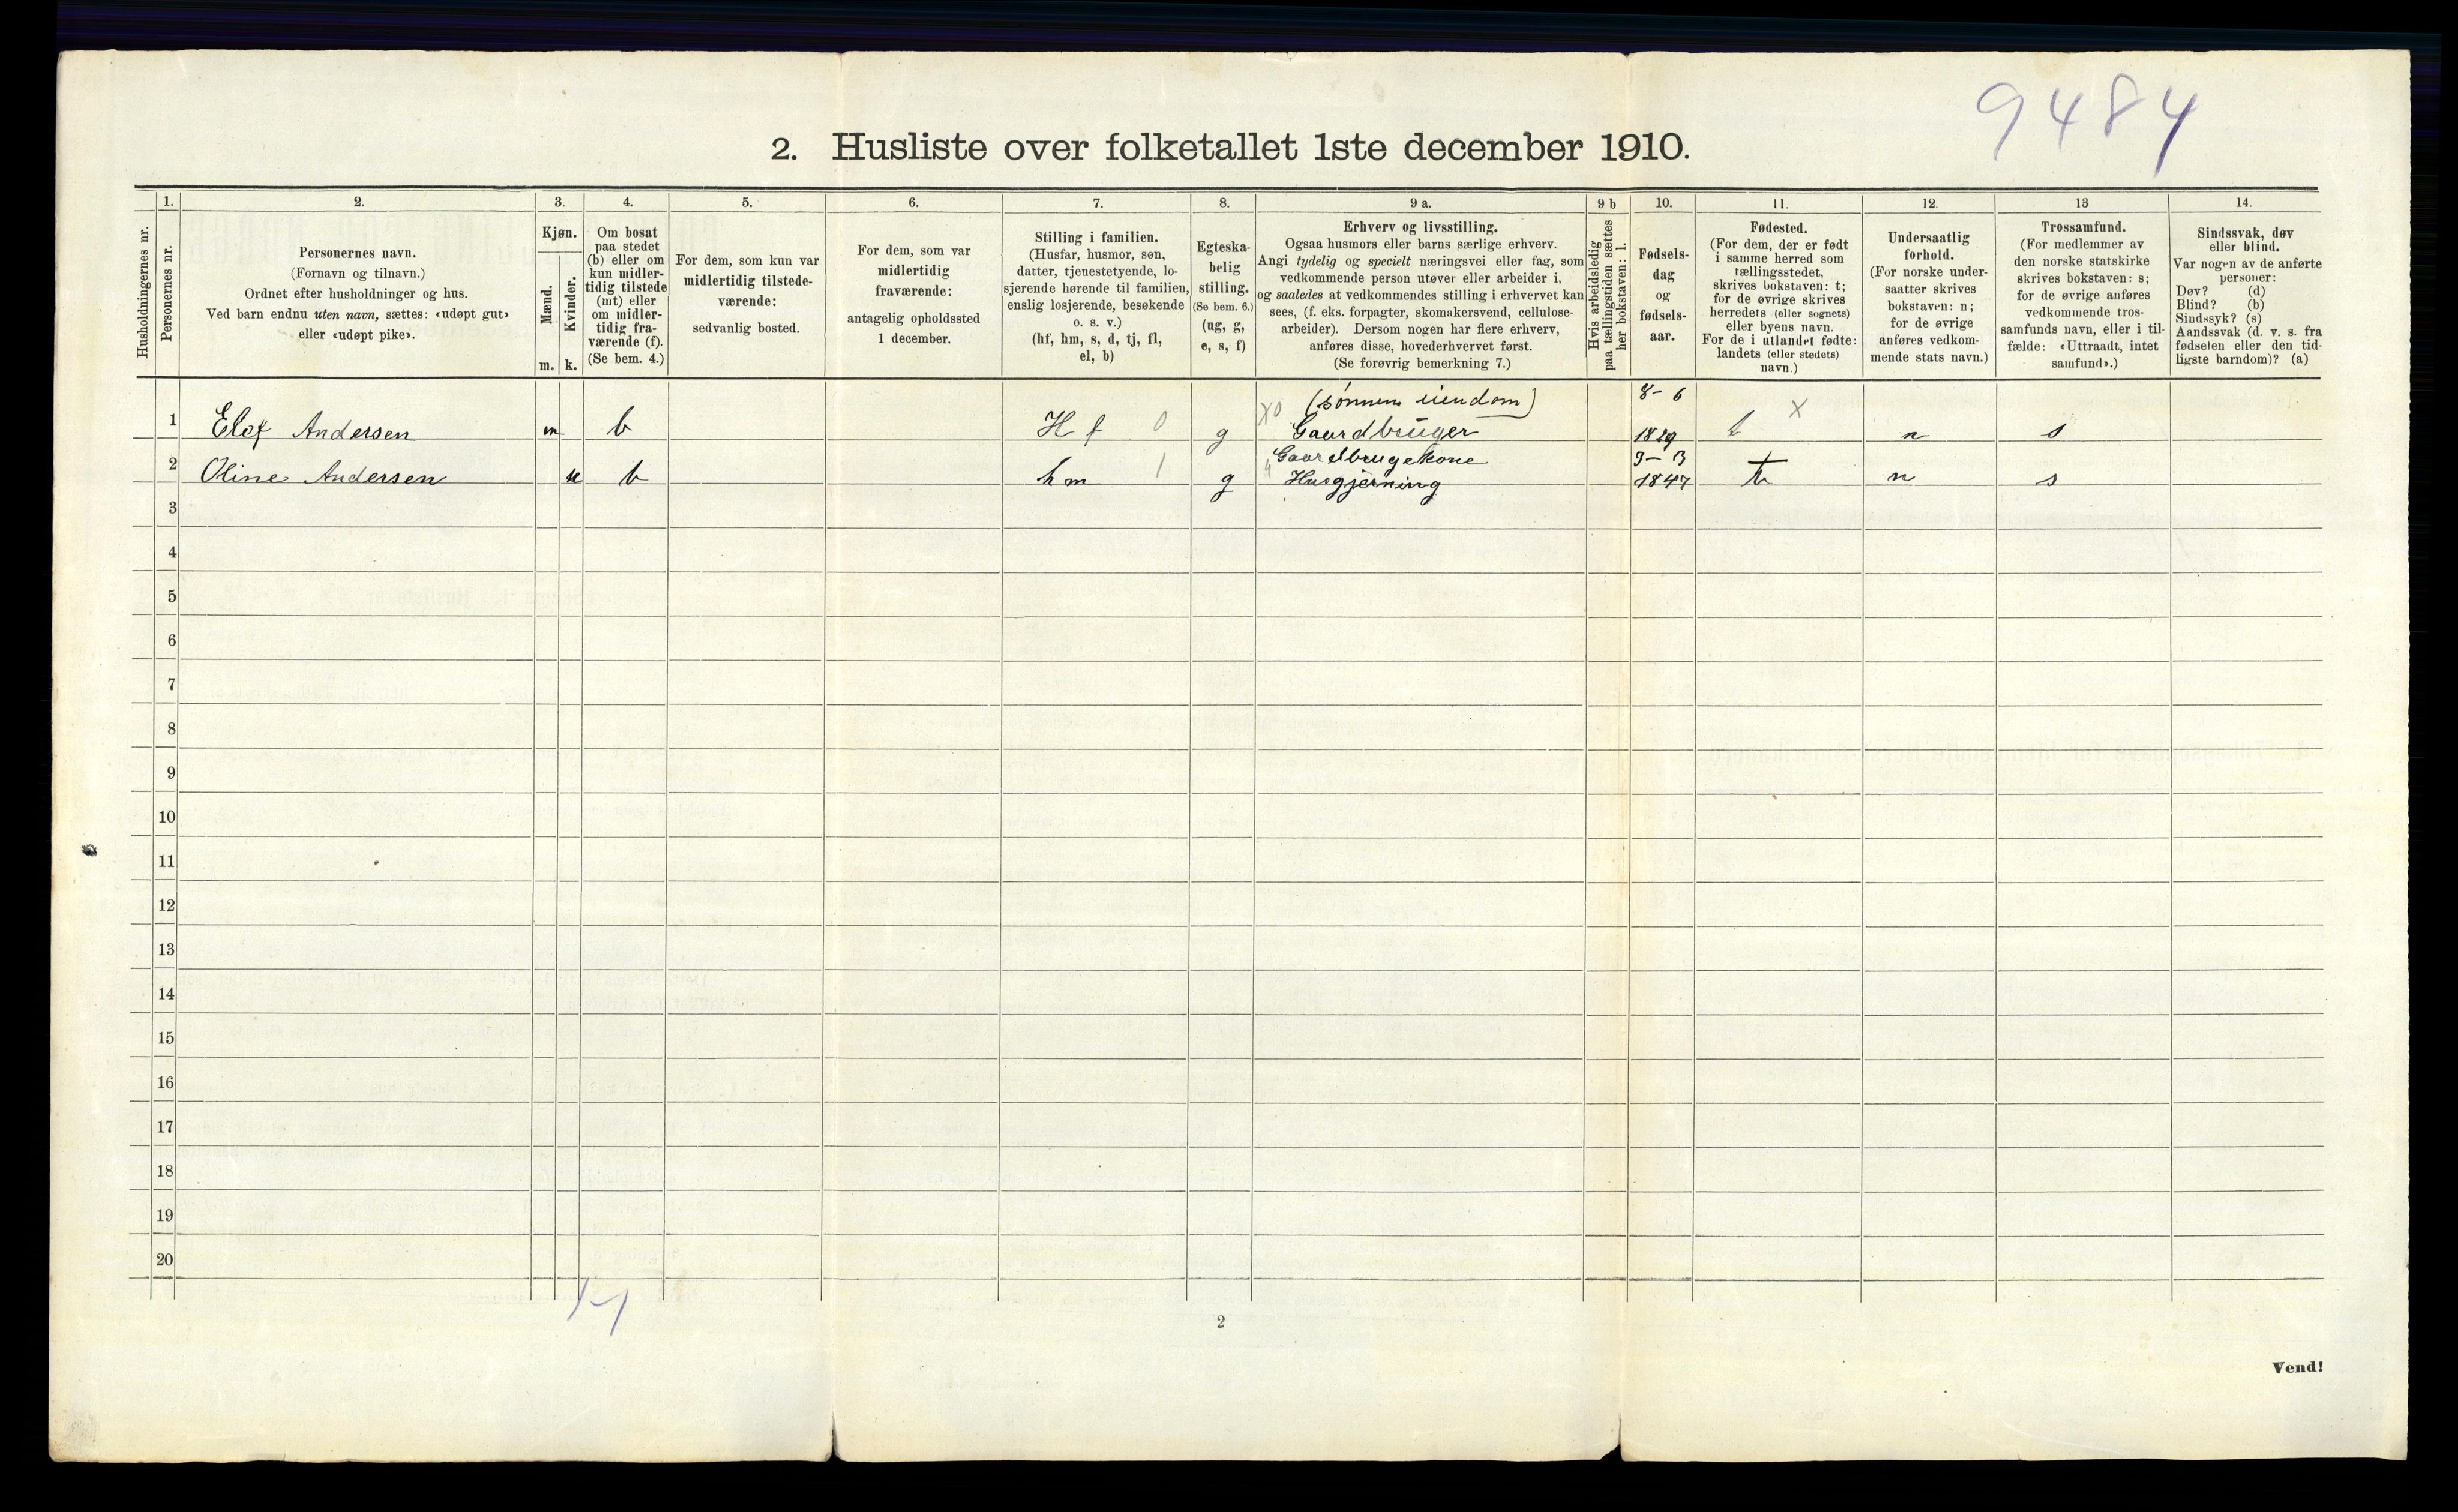 9484
2. Husliste over folketallet 1ste december 1910.
Husholdningernes nr.
1.
Personernes nr.
2.
Personernes navn.
(Fornavn og tilnavn.)
Ordnet efter husholdninger og hus.
Ved barn endnu uten navn, sættes: «udøpt gut»
eller «udøpt pike».
3.
Kjøn.
Mænd.
Kvinder.
m.
k.
4.
Om bosat
paa stedet
(b) eller om
kun midler-
tidig tilstede
(mt) eller
om midler-
tidig fra-
værende (f).
(Se bem. 4.)
5.
For dem, som kun var
midlertidig tilstede-
værende:
sedvanlig bosted.
6.
For dem, som var
midlertidig
fraværende:
antagelig opholdssted
1 december.
7.
Stilling i familien.
(Husfar, husmor, søn,
datter, tjenestetyende, lo-
sjerende hørende til familien,
enslig losjerende, besøkende
o. s. v.)
(hf, hm, s, d, tj, fl,
el, b)
8.
Egteska-
belig
stilling.
(Se bem. 6.)
(ug, g,
e, s, f)
9 a.
Erhverv og livsstilling.
Ogsaa husmors eller barns særlige erhverv.
Angi tydelig og specielt næringsvei eller fag, som
vedkommende person utøver eller arbeider i,
og saaledes at vedkommendes stilling i erhvervet kan
sees, (f. eks. forpagter, skomakersvend, cellulose-
arbeider). Dersom nogen har flere erhverv,
anføres disse, hovederhvervet først.
(Se forøvrig bemerkning 7.)
9 b
Hvis arbeidsledig
paa tællingstiden sættes
her bokstaven: l.
10.
Fødsels-
dag
og
fødsels-
aar.
11.
Fødested.
(For dem, der er født
i samme herred som
tællingsstedet,
skrives bokstaven: t;
for de øvrige skrives
herredets (eller sognets)
eller byens navn.
For de i utlandet fødte:
landets (eller stedets)
navn.)
12.
Undersaatlig
forhold.
(For norske under-
saatter skrives
bokstaven: n;
for de øvrige
anføres vedkom-
mende stats navn.)
13
Trossamfund.
(For medlemmer av
den norske statskirke
skrives bokstaven: s;
for de øvrige anføres
vedkommende tros-
samfunds navn, eller i til-
fælde: «Uttraadt, intet
samfund».)
14.
Sindssvak, døv
eller blind.
Var nogen av de anførte
personer:
Døv? (d)
Blind? (b)
Sindssyk? (s)
Aandssvak (d. v. s. fra
fødselen eller den tid-
ligste barndom)? (a)
(sønnens eiendom) 8-6
1 Elef Andersen m b Hf 0 g X0 Gaardbruger 1829 t X n s
Gaardbrugekone 9-3
2 Oline Andersen k b hm 1 g Husgjerning 1847 t n s
3
4
5
6
7
8
9
10
11
12
13
14
15
16
17
18
19
20
1-1
2
Vend!